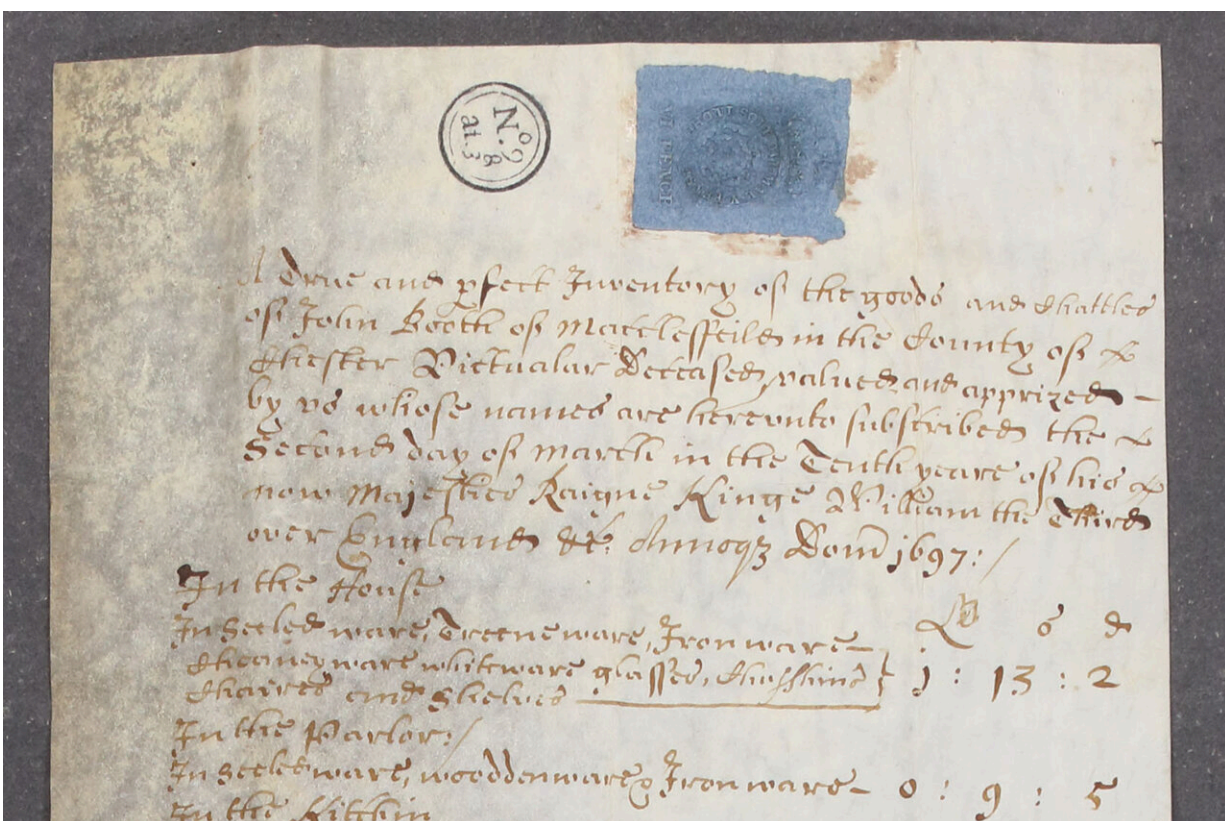 No. 2
at. 38
VI PENCE
A True and pfect Inventory of the goods and Chattles
of John Booth of Macclesfeild in the County of
Chester Victualar Deceased, valued and apprized –
by vs whose names are herevnto subscribed the
Second day of March in the Tenth yeare of his
now Majesties Raigne Kinge William the Third
over England &c: Annoqz Dom 1697:/
In the House
In Seeled ware, Treene ware, Iron ware – £ s d
Cheaney ware whiteware glasses, Chusshins } 1 : 13 : 2
Chaires and Shelves
In the Parlor:/
In Seeled ware, woodden ware & Iron ware – 0 : 9 : 5
In the Kitchin